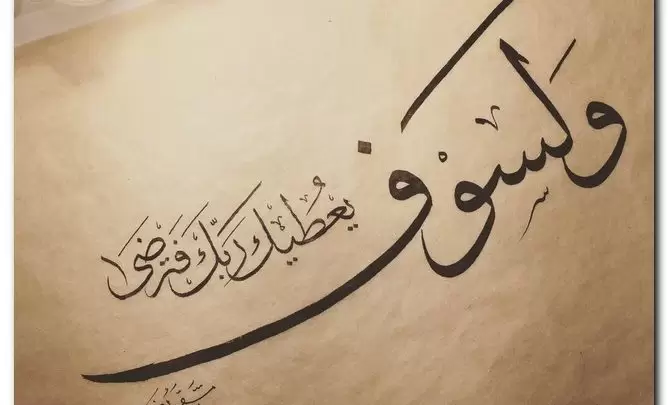 وَلَسَوْف
يُعْطِيكَ رَبُّكَ فَتَرْضَى